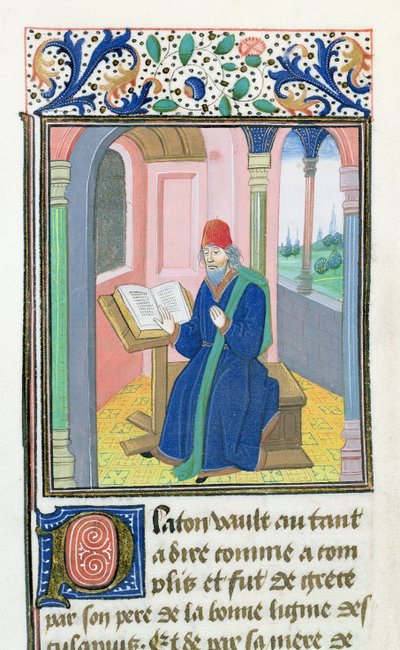 Platon vault autant
a dire comme a com
plis et fut de grece
par son pere de la bonne ligne des
culapius. Et de par sa mere de